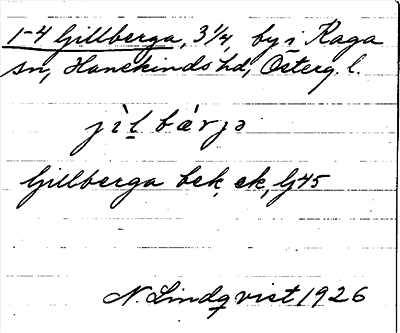 1-4 Gillberga, 3 1/4, by i Kaga
sn, Hanekinds hd, Österg. l.
jìl bárjə
Gillberga bek, ek, Gj 45
N. Lindqvist 1926